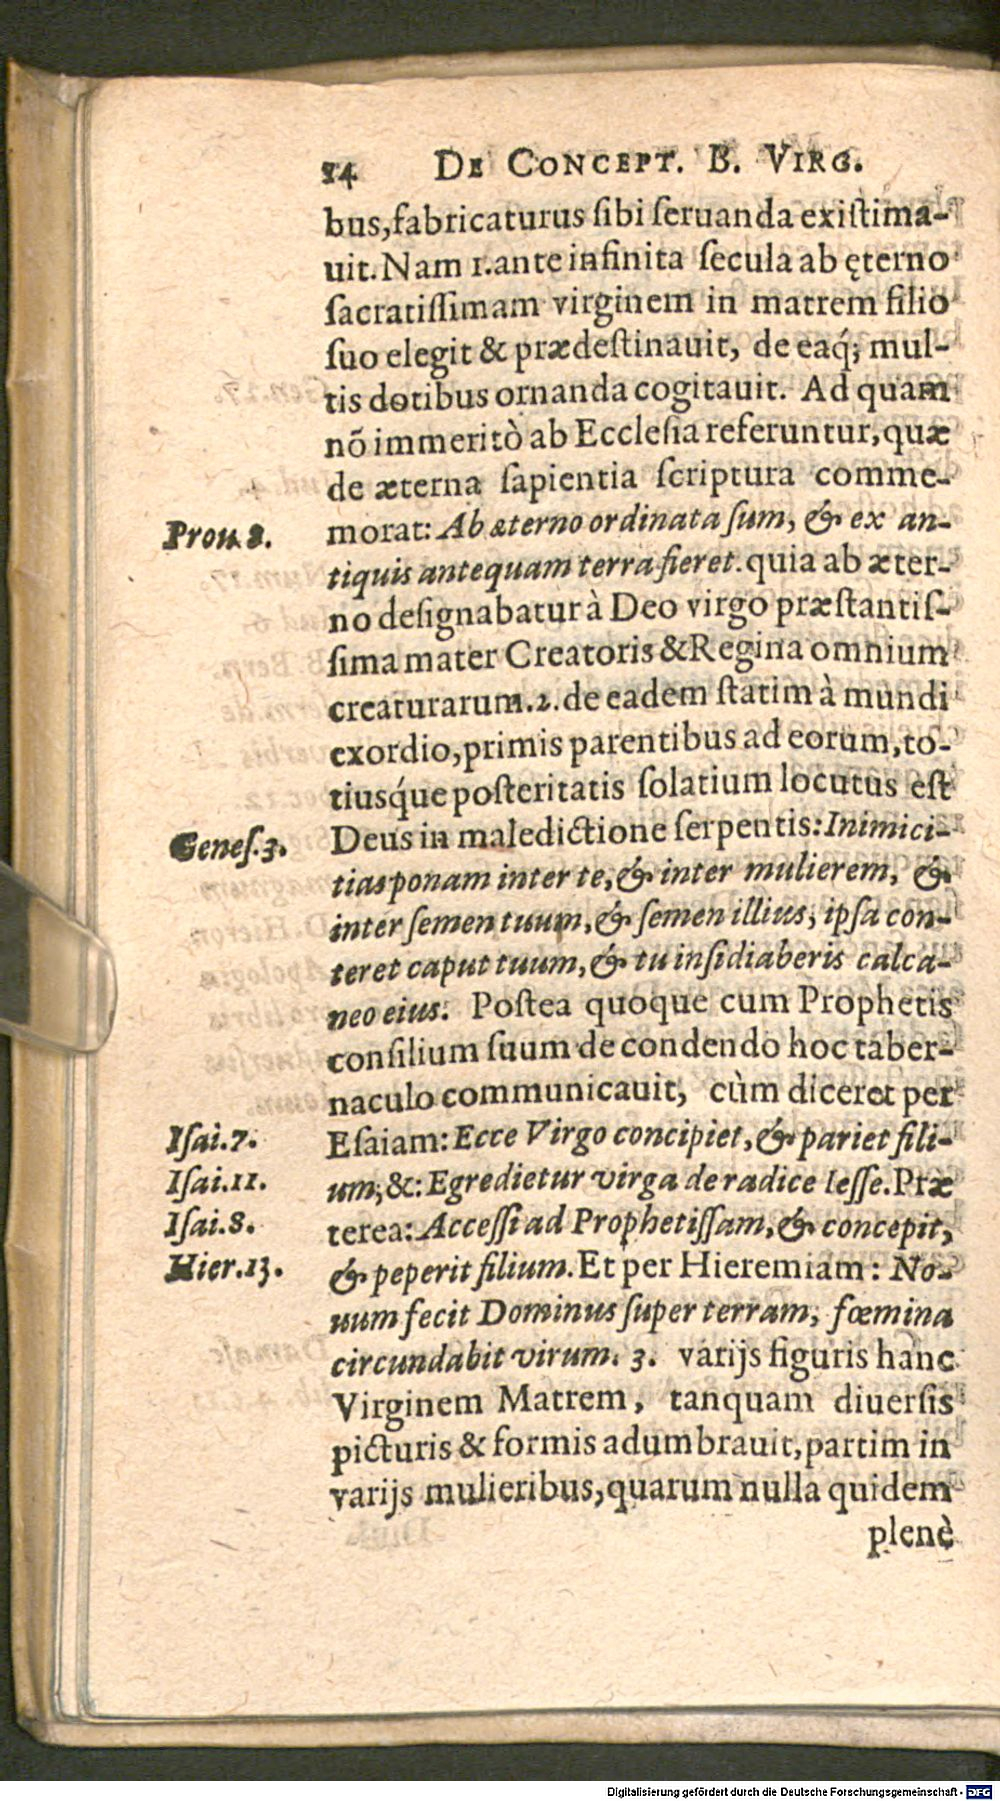 54 DE CONCEPT. B. VIRG.
bus, fabricaturus sibi seruanda existima-
uit. Nam 1. ante infinita secula ab ęterno
sacratissimam virginem in matrem filio
suo elegit & prædestinauit, de eaq́; mul-
tis dotibus ornanda cogitauit. Ad quam
nõ immeritò ab Ecclesia referuntur, quæ
de æterna sapientia scriptura comme-
Prou. 8. morat: Ab æterno ordinata sum, & ex an-
tiquis antequam terra fieret. quia ab æter-
no designabatur à Deo virgo præstantis-
sima mater Creatoris & Regina omnium
creaturarum. 2. de eadem statim à mundi
exordio, primis parentibus ad eorum, to-
tiusq́ue posteritatis solatium locutus est
Genes. 3. Deus in maledictione serpentis: Inimici-
tias ponam inter te, & inter mulierem, &
inter semen tuum, & semen illius, ipsa con-
teret caput tuum, & tu insidiaberis calca-
neo eius. Postea quoque cum Prophetis
consilium suum de condendo hoc taber-
naculo communicauit, cùm diceret per
Isai. 7. Esaiam: Ecce Virgo concipiet, & pariet fili-
Isai. 11. um; &: Egredietur virga de radice Iesse. Præ
Isai. 8. terea: Accessi ad Prophetissam, & concepit,
Hier. 13. & peperit filium. Et per Hieremiam: No-
uum fecit Dominus super terram, fœmina
circundabit virum. 3. varijs figuris hanc
Virginem Matrem, tanquam diuersis
picturis & formis adumbrauit, partim in
varijs mulieribus, quarum nulla quidem
plenè
Digitalisierung gefördert durch die Deutsche Forschungsgemeinschaft - DFG